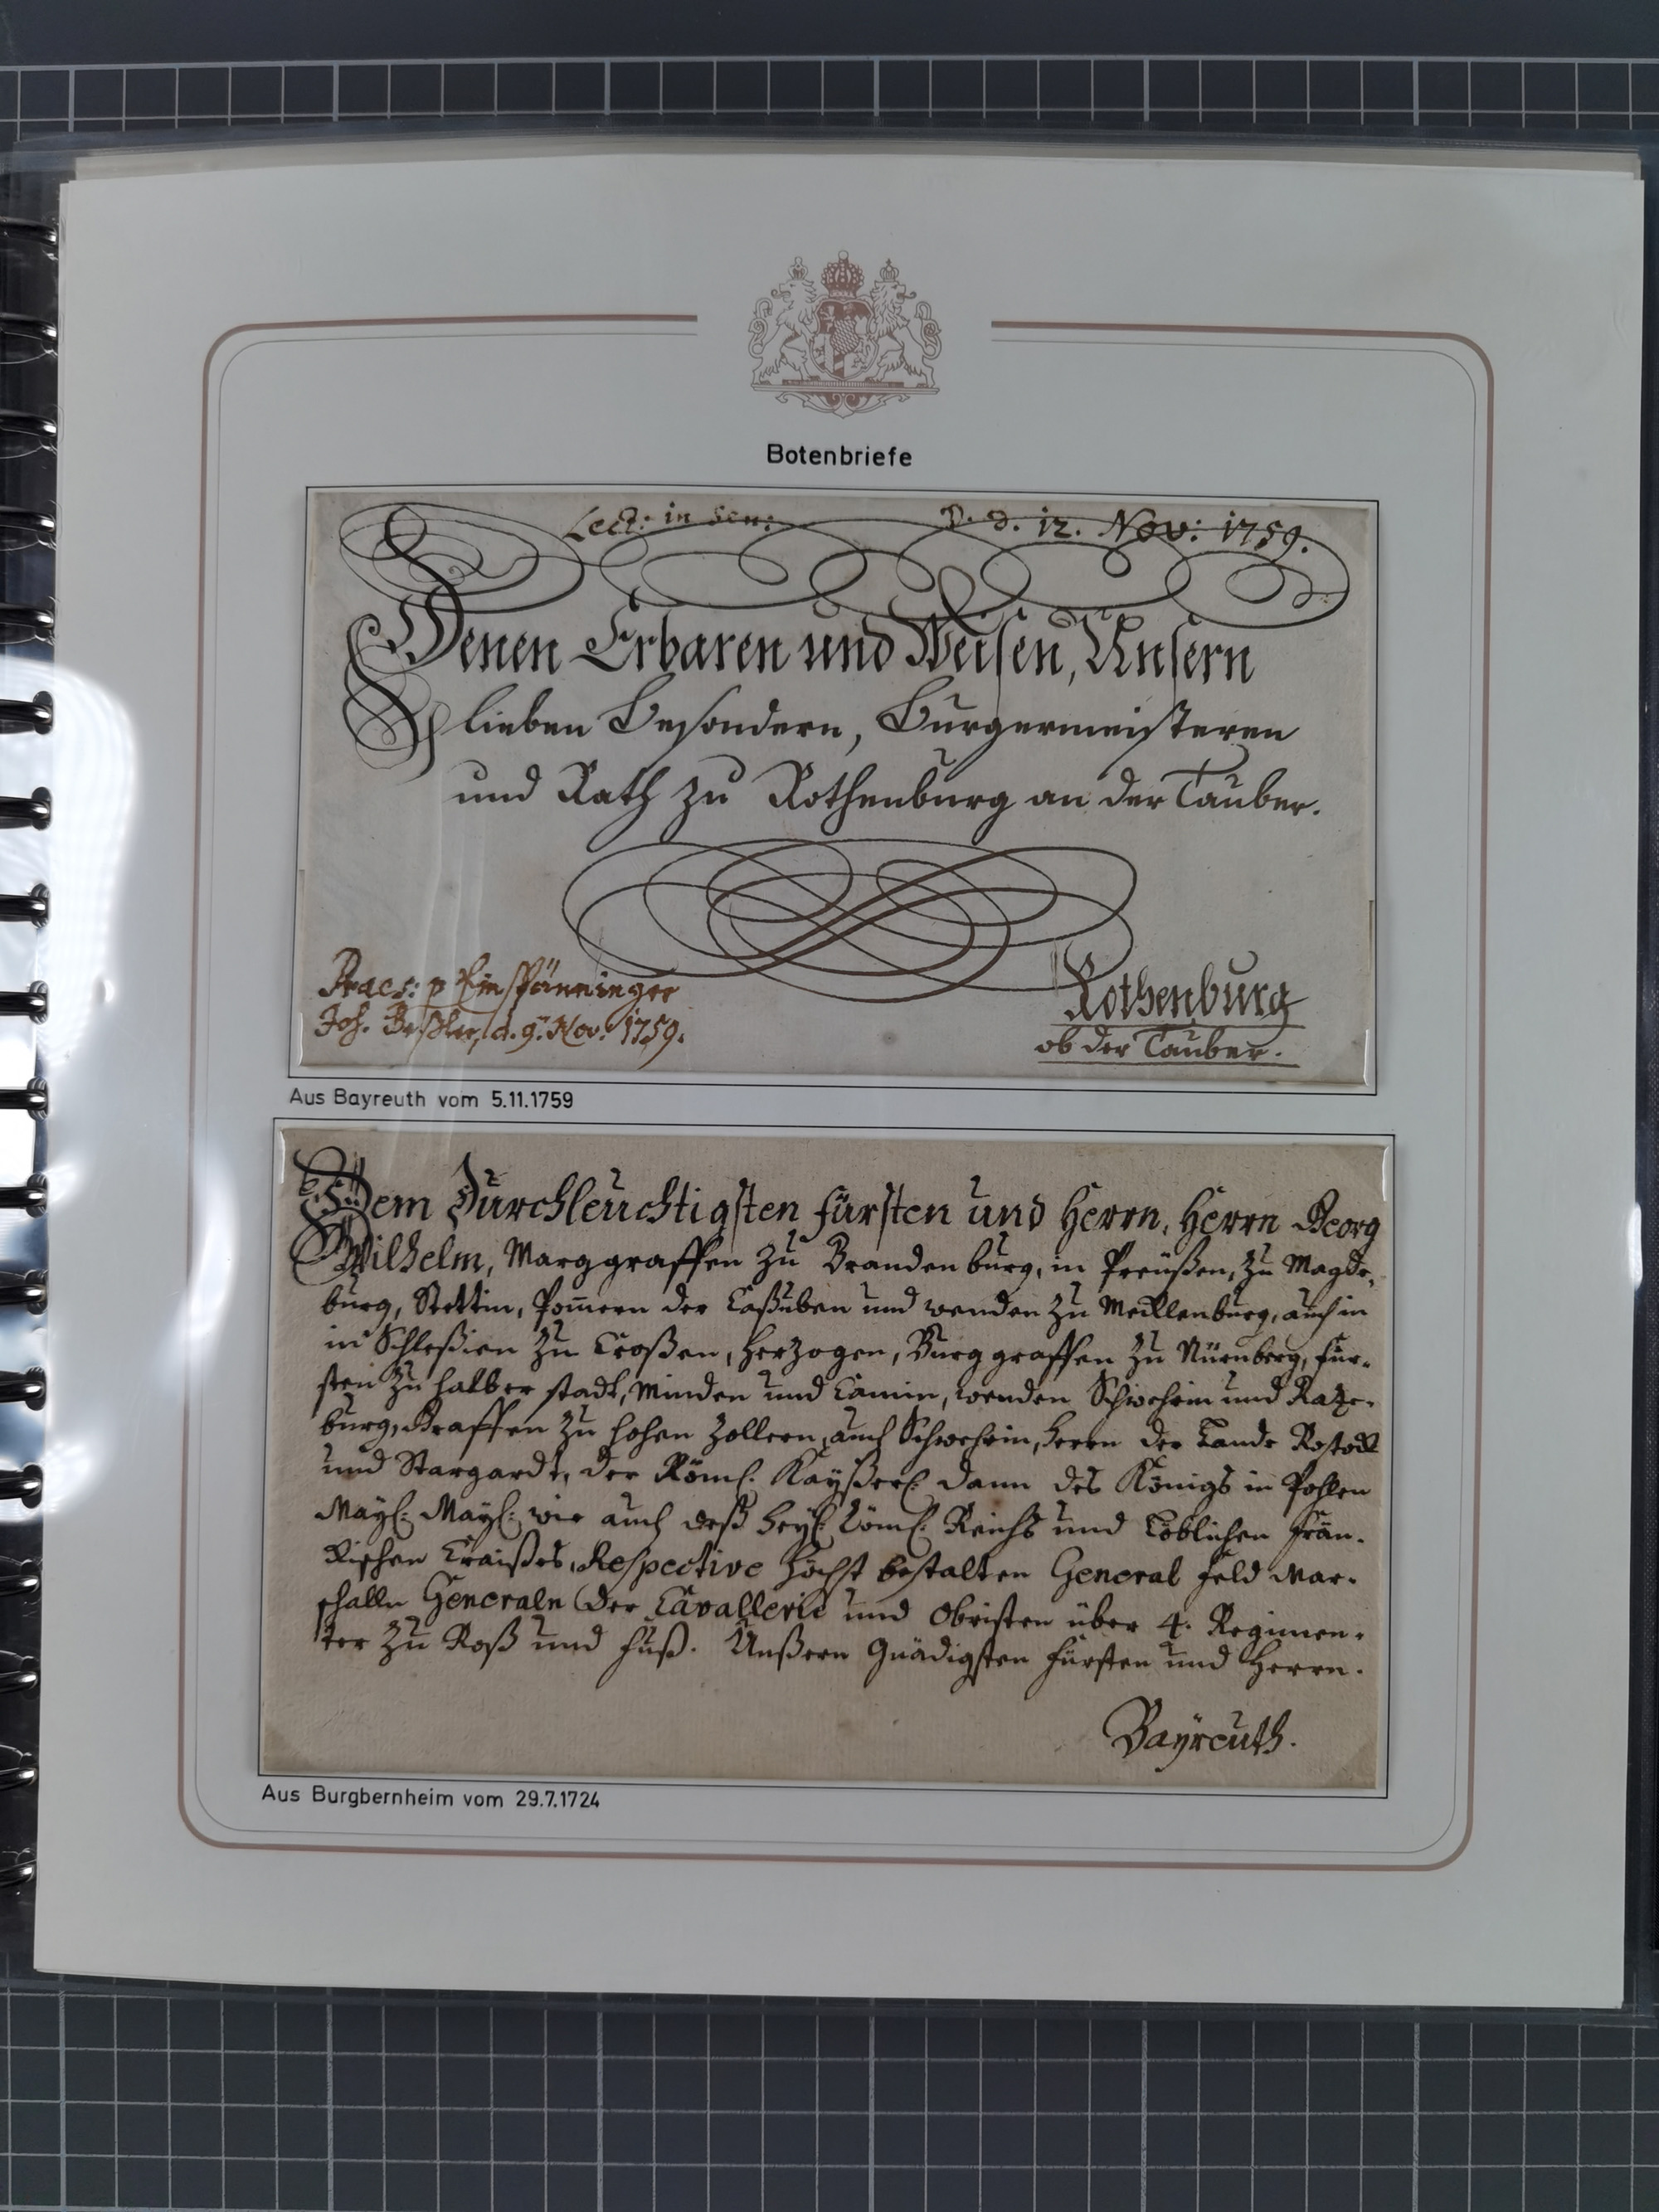 Botenbriefe
Lect: in Sen: D. d. 12. Nov: 1759.
Denen Erbaren und Weisen, Unsern
lieben Besondern, Burgermeisteren
und Rath zu Rothenburg an der Tauber.
Praes: p Einspänninger
Joh. d. 9. Nov: 1759.
Rothenburg
ob der Tauber.
Aus Bayreuth vom 5.11.1759
Dem Durchleuchtigsten Fürsten und Herrn, Herrn Georg
Wilhelm, Marggraffen zu Brandenburg, in Preüßen, zu Magde-
burg, Stettin, Pom̄ern der Caßuben und Wenden zu Mecklenburg, auch in
in Schleßien zu Croßen, Herzogen, Burggraffen zu Nürnberg, Für-
sten zu Halberstadt, Minden und Camin, Wenden Schwehrin und Raze-
burg, Graffen zu Hohen Zollern, auch Schwehrin, Herrn der Lande Rostock
und Stargardt, der Röml. Kayßerl. dann des Königs in Pohlen
Mayl. Mayl. wie auch deß Heyl. Röml. Reichs und Löblichen Frän-
kischen Craißes, Respective Höchst bestalten General Feld Mar-
schalln Generaln der Cavallerie und Obristen über 4. Regimen-
ter zu Roß und Fuß. Unßern Gnädigsten Fürsten und Herrn.
Bayreuth.
Aus Burgbernheim vom 29.7.1724